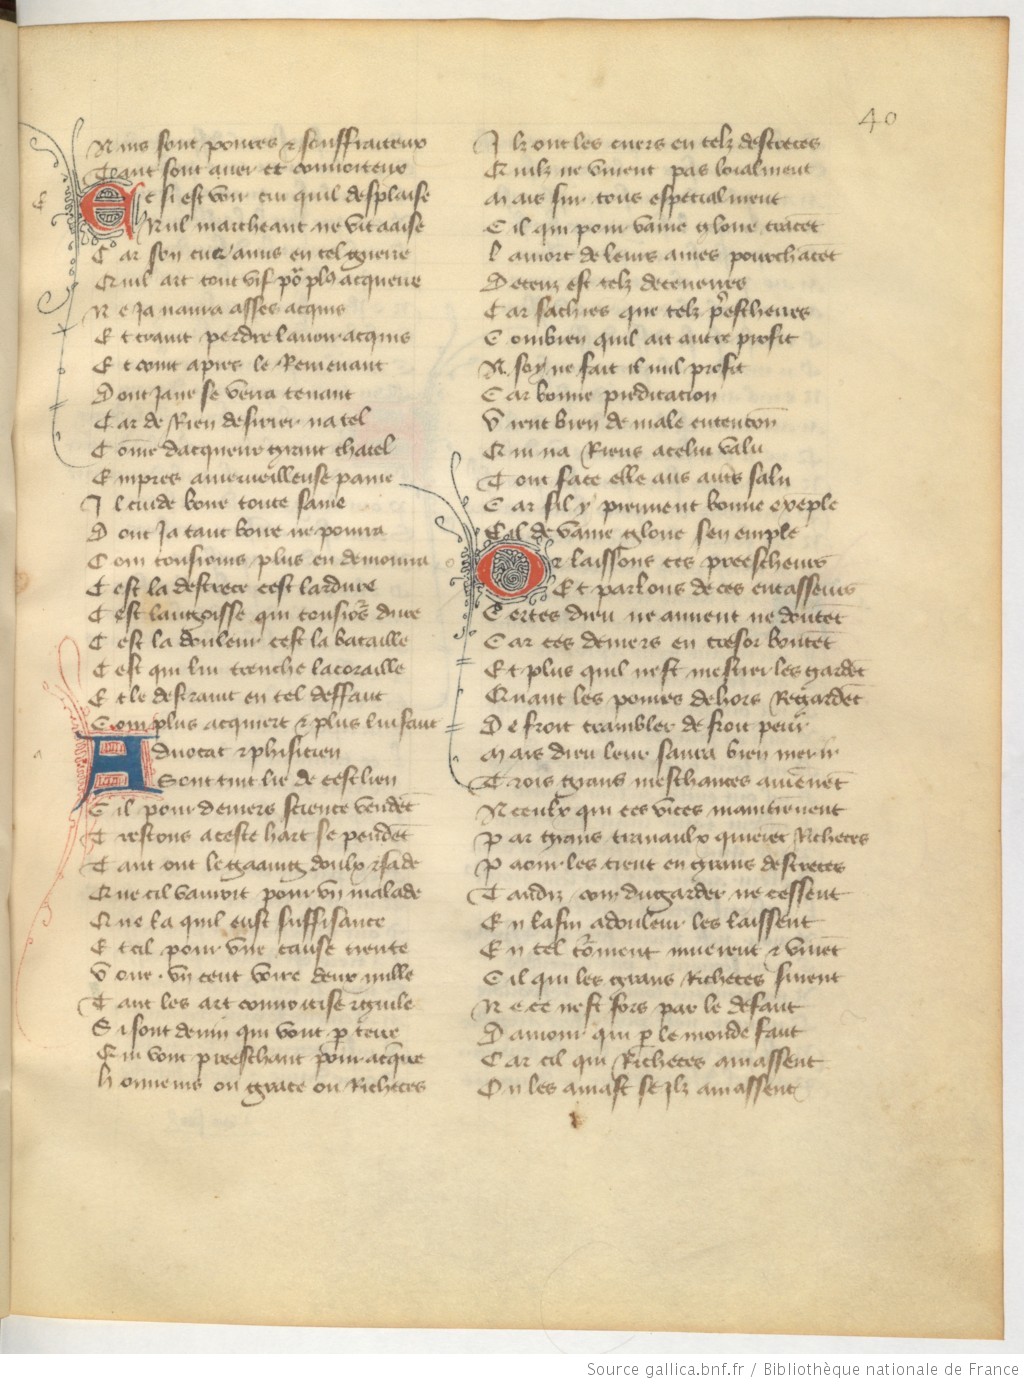 40
Mais sont poures & souffraiteux
Tant sont auer et conuoiteux
Et si est voir cui quil desplaise
Nul marcheant ne vit aaise
Car son cuer a mis en tel guerre
Quil art tout vif por plus acquerre
Ne ja naura asses acquis
Et craint perdre lauoir acquis
Et court apres le Remenant
Dont jane se verra tenant
Car de Rien desirier na tel
Comme dacquerre grant chatel
Empris a merueilleuse paine
Il cuide boire toute saine
Dont Ja tant boire ne pourra
Com tousiours plus en demourra
Cest la destrece cest lardure
Cest langoisse qui tousiours dure
Cest la douleur cest la bataille
Cest qui lui trenche la coraille
Et le destraint en tel deffaut
Com plus acquiert & plus lui faut
Aduocat & phisicien
Sont tuit lie de cest lien
Cil pour deniers science vendent
Trestous a ceste hart se pendent
Tant ont le gaaing doulx & sade
Que cil vauroit pour vn malade
Que la quil eust suffisance
Et cil pour vne cause trente
Voire vn cent voire deux mille
Tant les art conuoitise & guile
Si sont deuin qui vont par terre
Qui vont preeschant pour acquerre
Honneurs ou grace ou Richeces
Ilz ont les cuers en telz destreces
Quilz ne viuent pas loialment
Mais sur tous especialment
Cil qui pour vaine gloire tracent
La mort de leurs ames pourchacent
Deceuz est telz deceueurs
Car sachies que telz preescheurs
Combien quil ait autre profit
A soy ne fait il nul profit
Car bonne predication
Vient bien de male entencion
Qui na Riens a celui valu
Tout face elle aus autres salu
Car sil y prennent bonne exemple
Cil de vaine gloire sen emple
Or laissons ces preescheurs
Et parlons de ces entasseurs
Certes dieu ne aiment ne doutent
Car ces deniers en tresor boutent
Et plus quil nest mestier les gardent
Quant les poures dehors Regardent
De froit trambler de froit peur
Mais dieu leur saura bien merir
Trois grans meschances auienent
A ceulx qui ces vices maintienent
Par grans trauaulx quierent Richeces
Paour les tient en grans destreces
Tandiz com du garder ne cessent
En la fin a douleur les laissent
En tel torment muerent & viuent
Cil qui les grans Richeces suiuent
Ne ce nest fors par le defaut
Damour qui par le monde faut
Car cil qui Richeces amassent
On les amast se ilz amassent
Source gallica.bnf.fr / Bibliothèque nationale de France